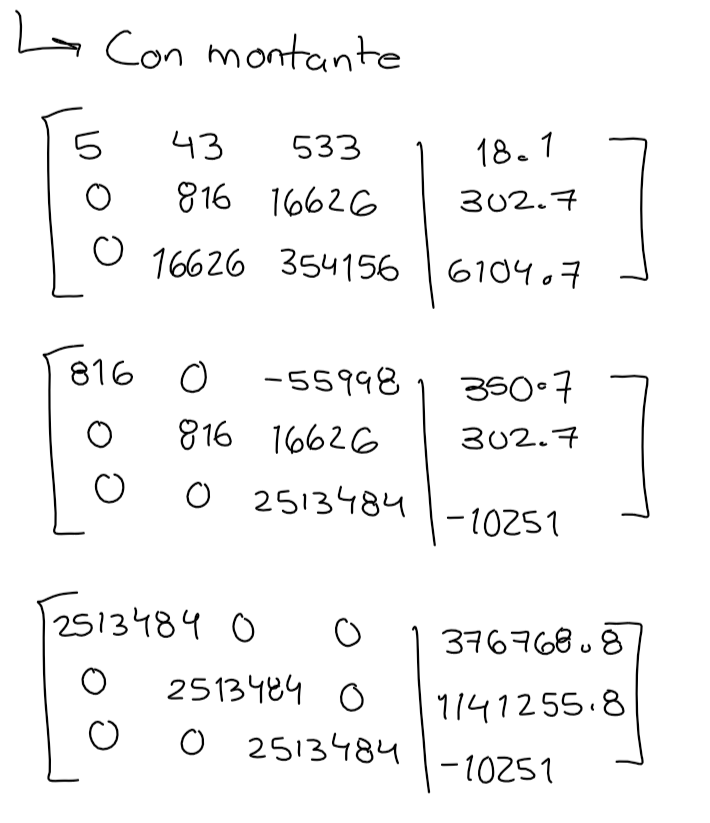 Con montante
5 43 533 | 18.1
0 816 16626 | 302.7
0 16626 354156 | 6104.7
816 0 -55998 | 350.7
0 816 16626 | 302.7
0 0 2513484 | -10251
2513484 0 0 | 376768.8
0 2513484 0 | 1141255.8
0 0 2513484 | -10251